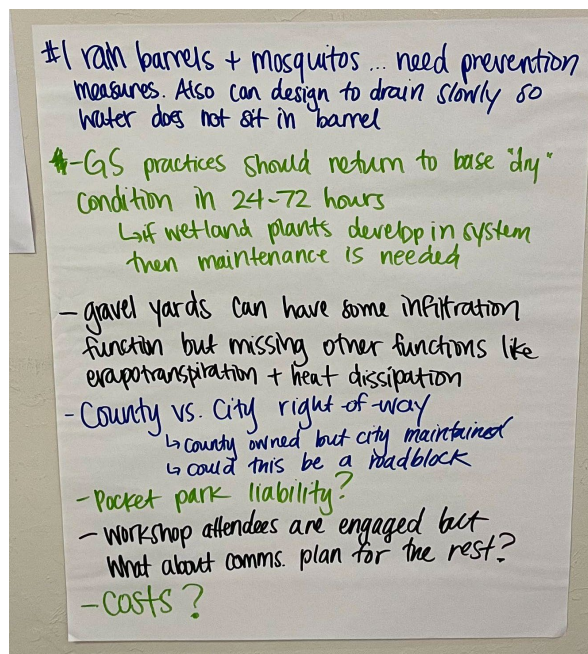 #1 rain barrels + mosquitos ... need prevention
measures. Also can design to drain slowly so
water does not sit in barrel
- GS practices should return to base "dry"
condition in 24-72 hours
↳ if wetland plants develop in system
then maintenance is needed
- gravel yards can have some infiltration
function but missing other functions like
evapotranspiration + heat dissipation
- County vs. City right-of-way
↳ county owned but city maintained
↳ could this be a roadblock
- Pocket park liability?
- Workshop attendees are engaged but
What about comms. plan for the rest?
- Costs?